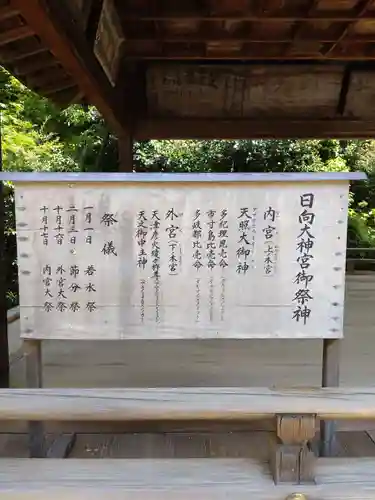 日向大神宮御祭神
内宮(上ノ本宮)
天照大御神
多紀理毘売命
市寸島比売命
多岐都比売命
外宮(下ノ本宮)
天津彦火瓊々杵尊
天之御中主神
祭儀
一月一日 若水祭
二月三日 節分祭
十月十六日 外宮大祭
十月十七日 内宮大祭